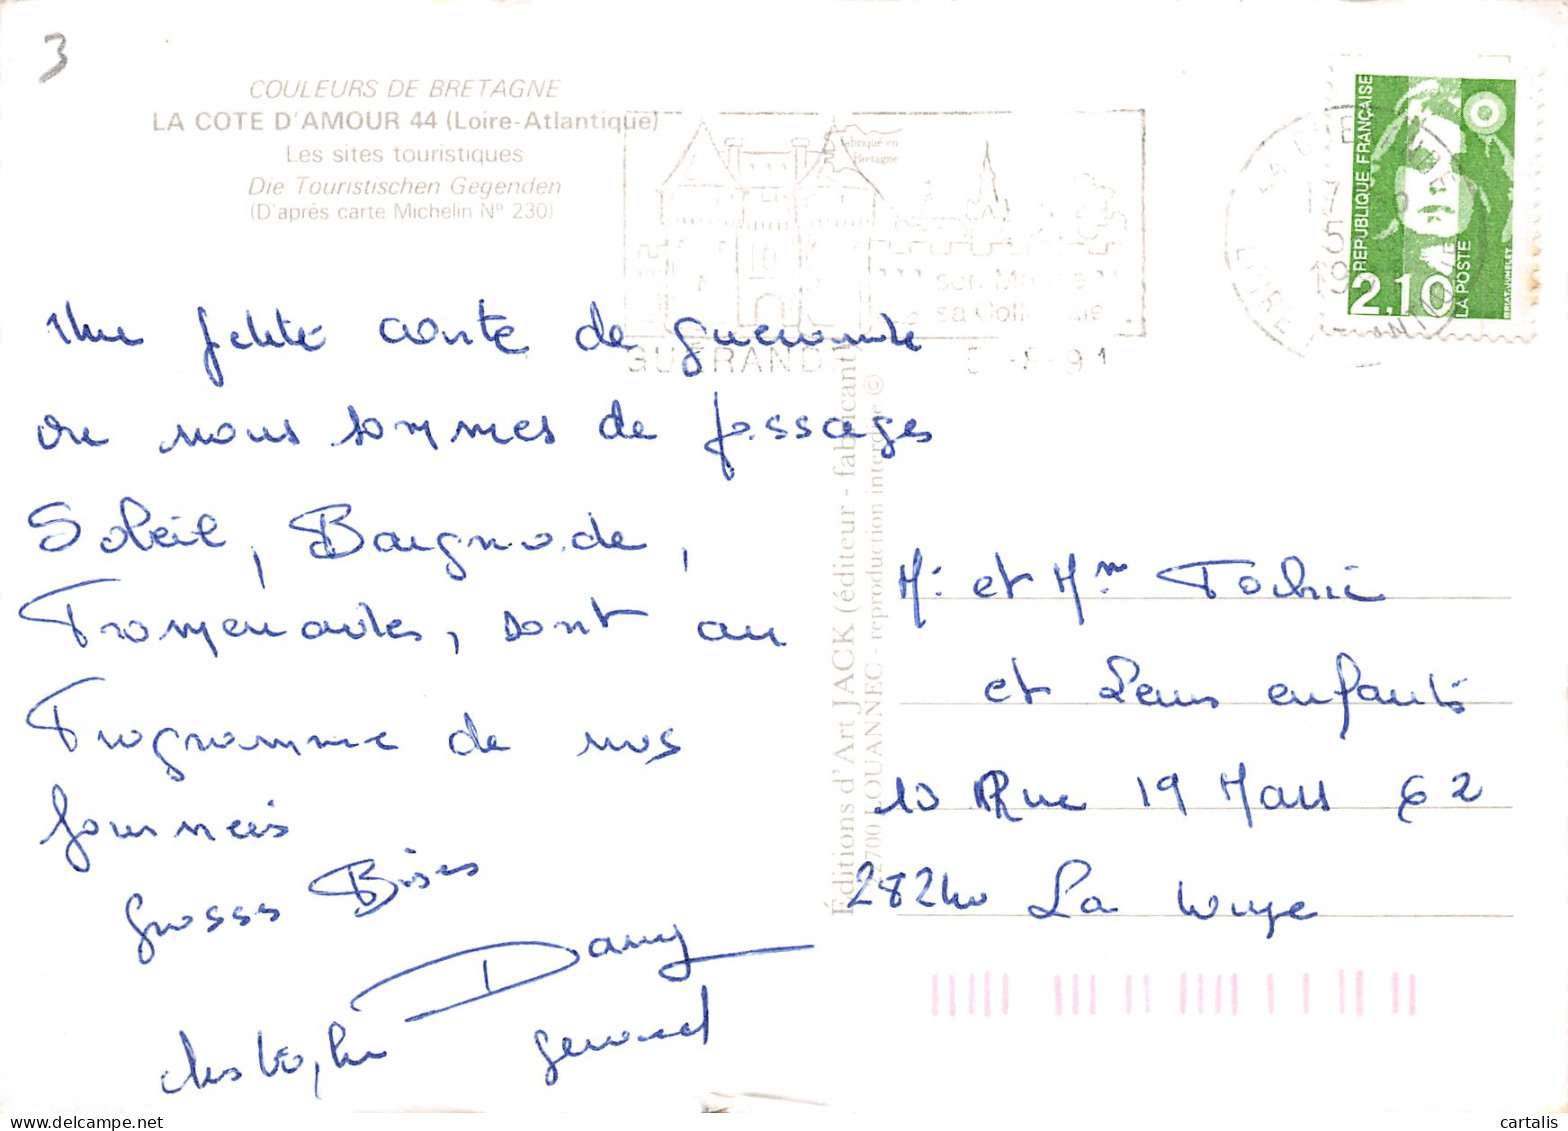 3
COULEURS DE BRETAGNE
LA COTE D'AMOUR 44 (Loire-Atlantique)
Les sites touristiques
Die Touristischen Gegenden
(D'après carte Michelin N° 230)
fabriqué en
Bretagne
son
sa
GUERANDE
RÉPUBLIQUE FRANÇAISE
2,10
LA POSTE
17
5
19
LOIRE
Une petite carte de guerande
ou nous sommes de passages
Soleil, Baignade,
Promenades, sont au
Programme de nos
journeés
Grosss Bises
Dany
christophe gerard
Éditions d'Art JACK (éditeur - fabricant)
LOUANNEC - reproduction interdite ©
Mr et Mme
et Leurs enfants
10 Rue 19 Mars 62
28240 La Loupe
cartalis